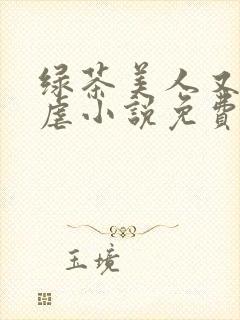 绿茶美人又
虐小説免費
玉境